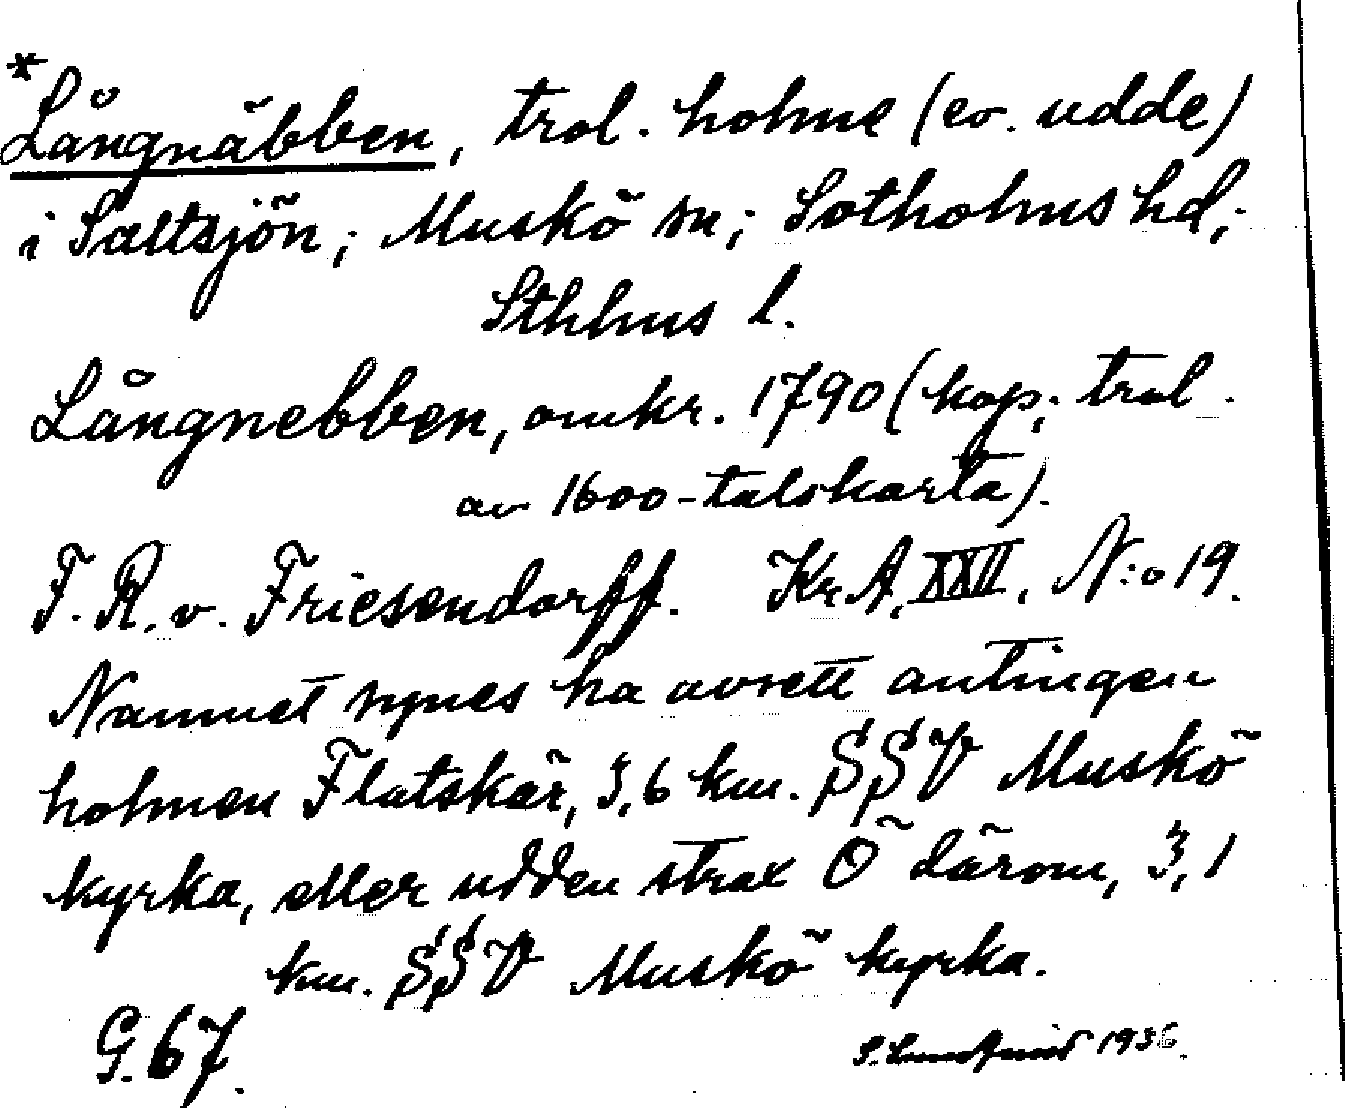 *Långnäbben, trol. holme (ev. udde)
i Saltsjön; Muskö sn; Sotholms hd;
Sthlms l.
Långnebben, omkr. 1790 (kop; trol.
av 1600-talskarta).
F. R. v. Friesendorff. Kr. A. XXII, N:o 19.
Namnet synes ha avsett antingen
holmen Flatskär, 3,6 km. SSV Muskö
kyrka, eller udden strax Ö därom, 3,1
km. SSV Muskö kyrka.
G. 67.
1936.